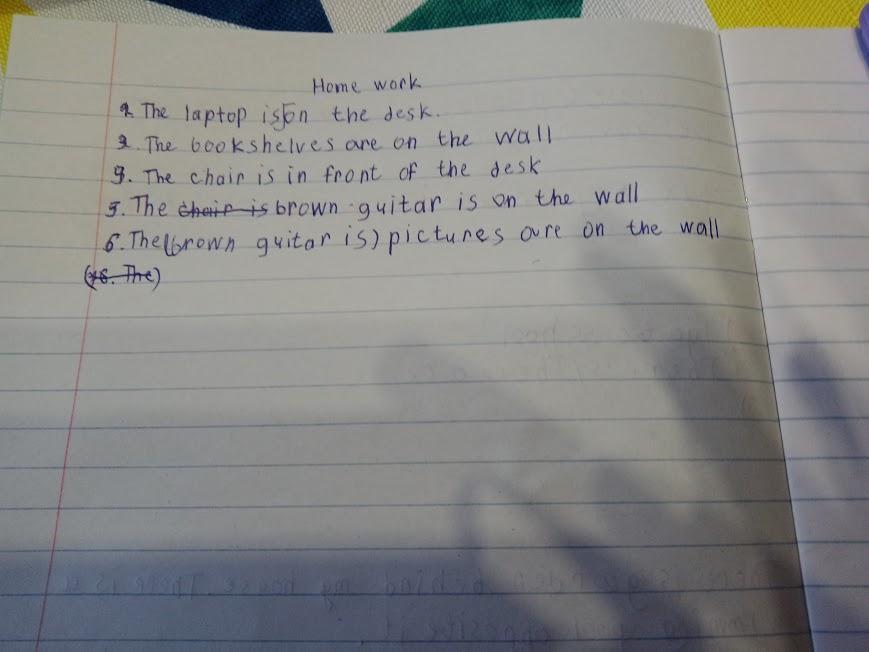 Home work
2. The laptop is on the desk.
3. The bookshelves are on the wall
4. The chair is in front of the desk
5. The chair is brown guitar is on the wall
6. The (brown guitar is) pictures are on the wall
(6. The)